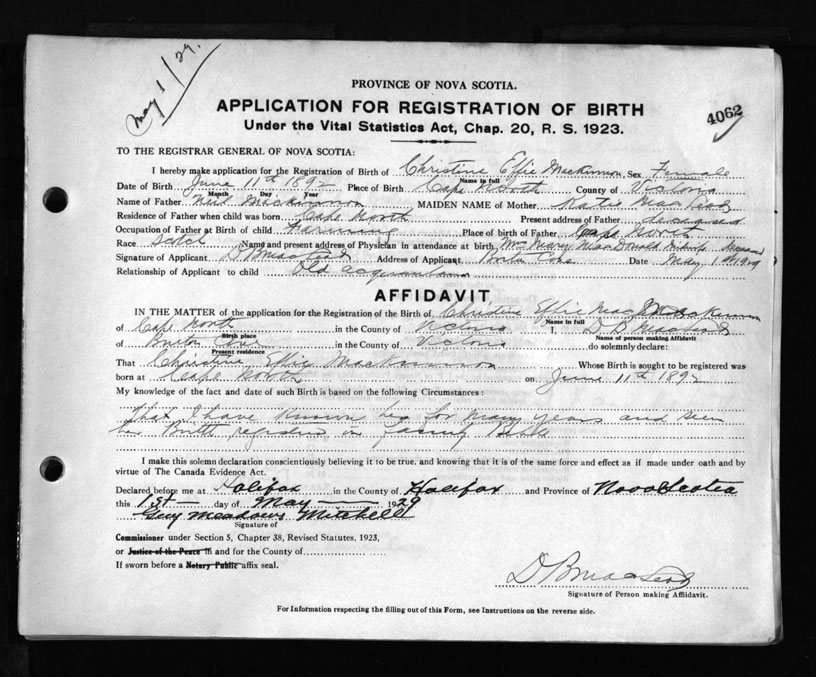 May 1/29.
PROVINCE OF NOVA SCOTIA.
APPLICATION FOR REGISTRATION OF BIRTH
4062
Under the Vital Statistics Act, Chap. 20, R. S. 1923.
TO THE REGISTRAR GENERAL OF NOVA SCOTIA:
I hereby make application for the Registration of Birth of Christine Effie Mackinnon Sex Female
Name in full
Date of Birth June 11th 1892 Place of Birth Cape North County of Victoria
Month Day Year
Name of Father Neil Mackinnon MAIDEN NAME of Mother Katie MacLeod
Residence of Father when child was born Cape North Present address of Father deceased
Occupation of Father at Birth of child Farming Place of birth of Father Cape North
Race Scotch Name and present address of Physician in attendance at birth Mrs Mary MacDonald Midwife deceased
Signature of Applicant D B MacLeod Address of Applicant Burton Cove Date May 1st 1929
Relationship of Applicant to child Old acquaintance
AFFIDAVIT
IN THE MATTER of the application for the Registration of the Birth of Christine Effie MacKinnon
Name in full
of Cape North in the County of Victoria I, D B MacLeod
Birth place Name of person making Affidavit
of Burton Cove in the County of Victoria do solemnly declare:
Present residence
That Christine Effie MacKinnon Whose Birth is sought to be registered was
born at Cape North on June 11th 1892
My knowledge of the fact and date of such Birth is based on the following Circumstances:
that I have known her for many years and seen
her Birth registered in family Bible
I make this solemn declaration conscientiously believing it to be true, and knowing that it is of the same force and effect as if made under oath and by
virtue of The Canada Evidence Act.
Declared before me at Halifax in the County of Halifax and Province of Nova Scotia
this 1st day of May 1929
Guy Meadows Mitchell
Signature of
Commissioner under Section 5, Chapter 38, Revised Statutes, 1923,
or Justice of the Peace in and for the County of
If sworn before a Notary Public affix seal.
D B MacLeod
Signature of Person making Affidavit.
For Information respecting the filling out of this Form, see Instructions on the reverse side.